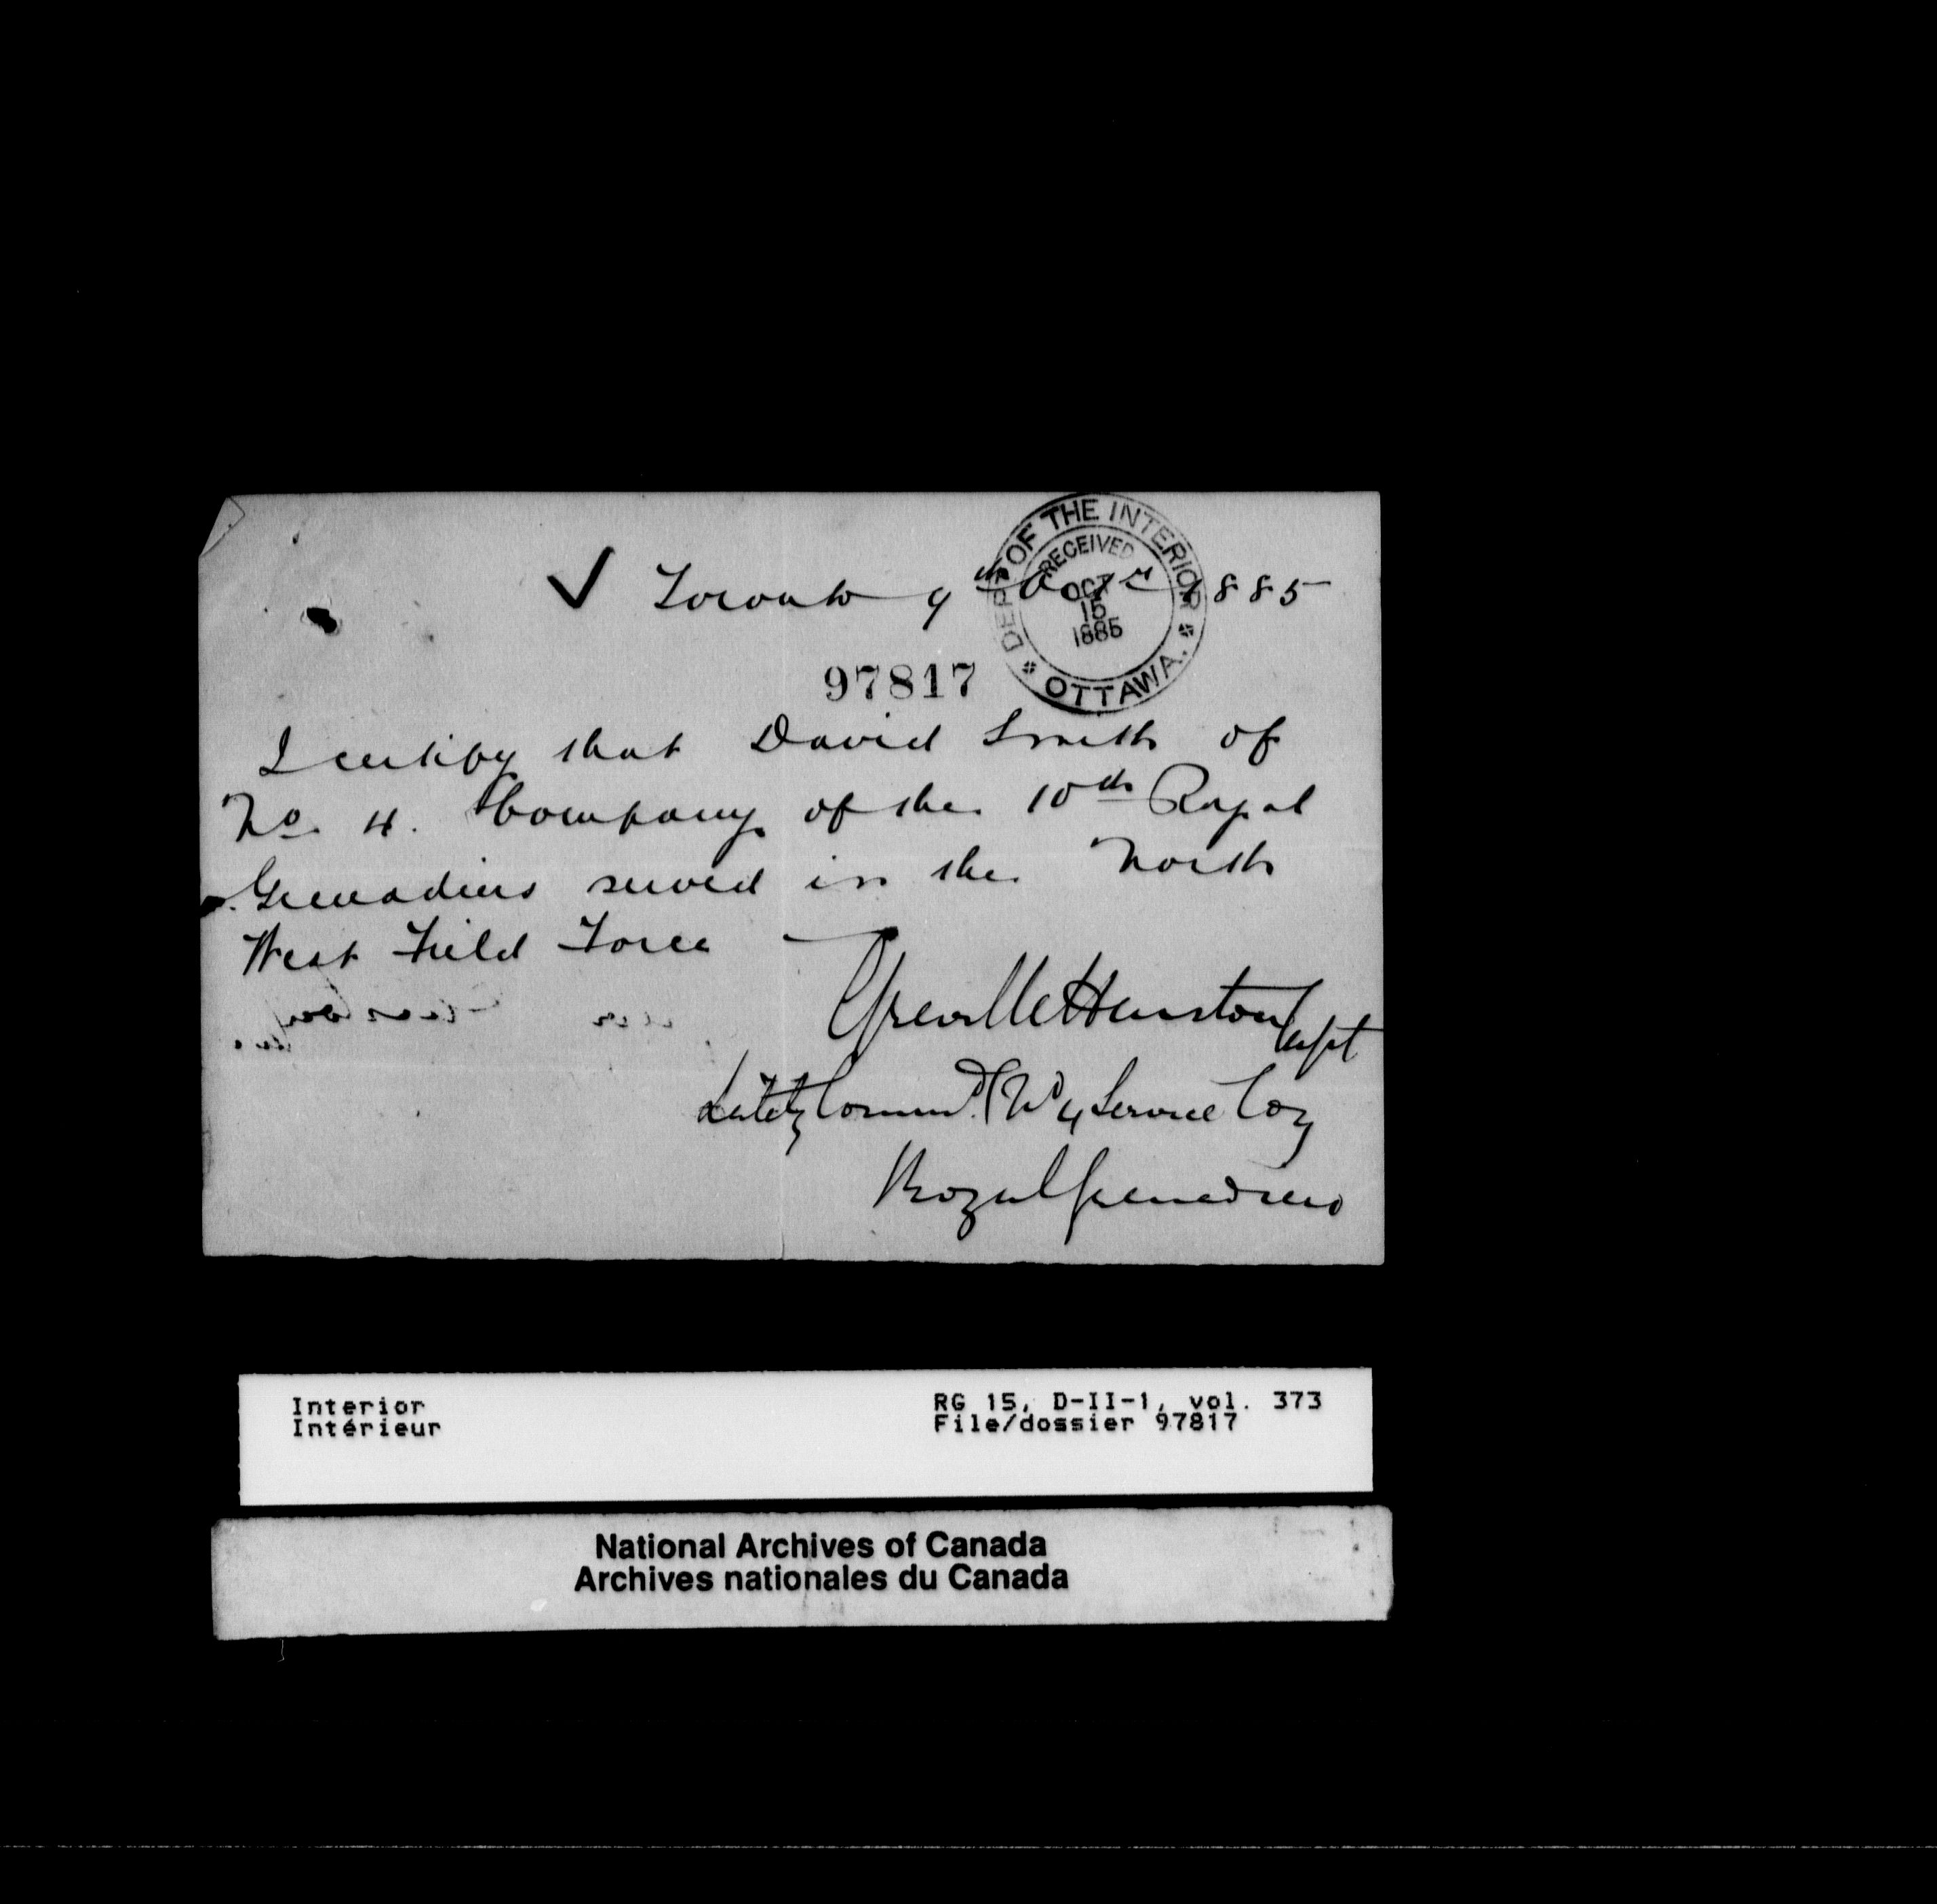 ✓ Toronto 9th Octr 1885
DEPT OF THE INTERIOR
RECEIVED
OCT
15
1885
* OTTAWA. *
97817
I certify that David Smith of
No. 4. Company of the 10th Royal
Grenadiers served in the North
West Field Force —
Greville Harston Capt
Lately Commd. No 4 Service Coy
Royal Grenadiers
Interior
Intérieur
RG 15, D-II-1, vol. 373
File/dossier 97817
National Archives of Canada
Archives nationales du Canada